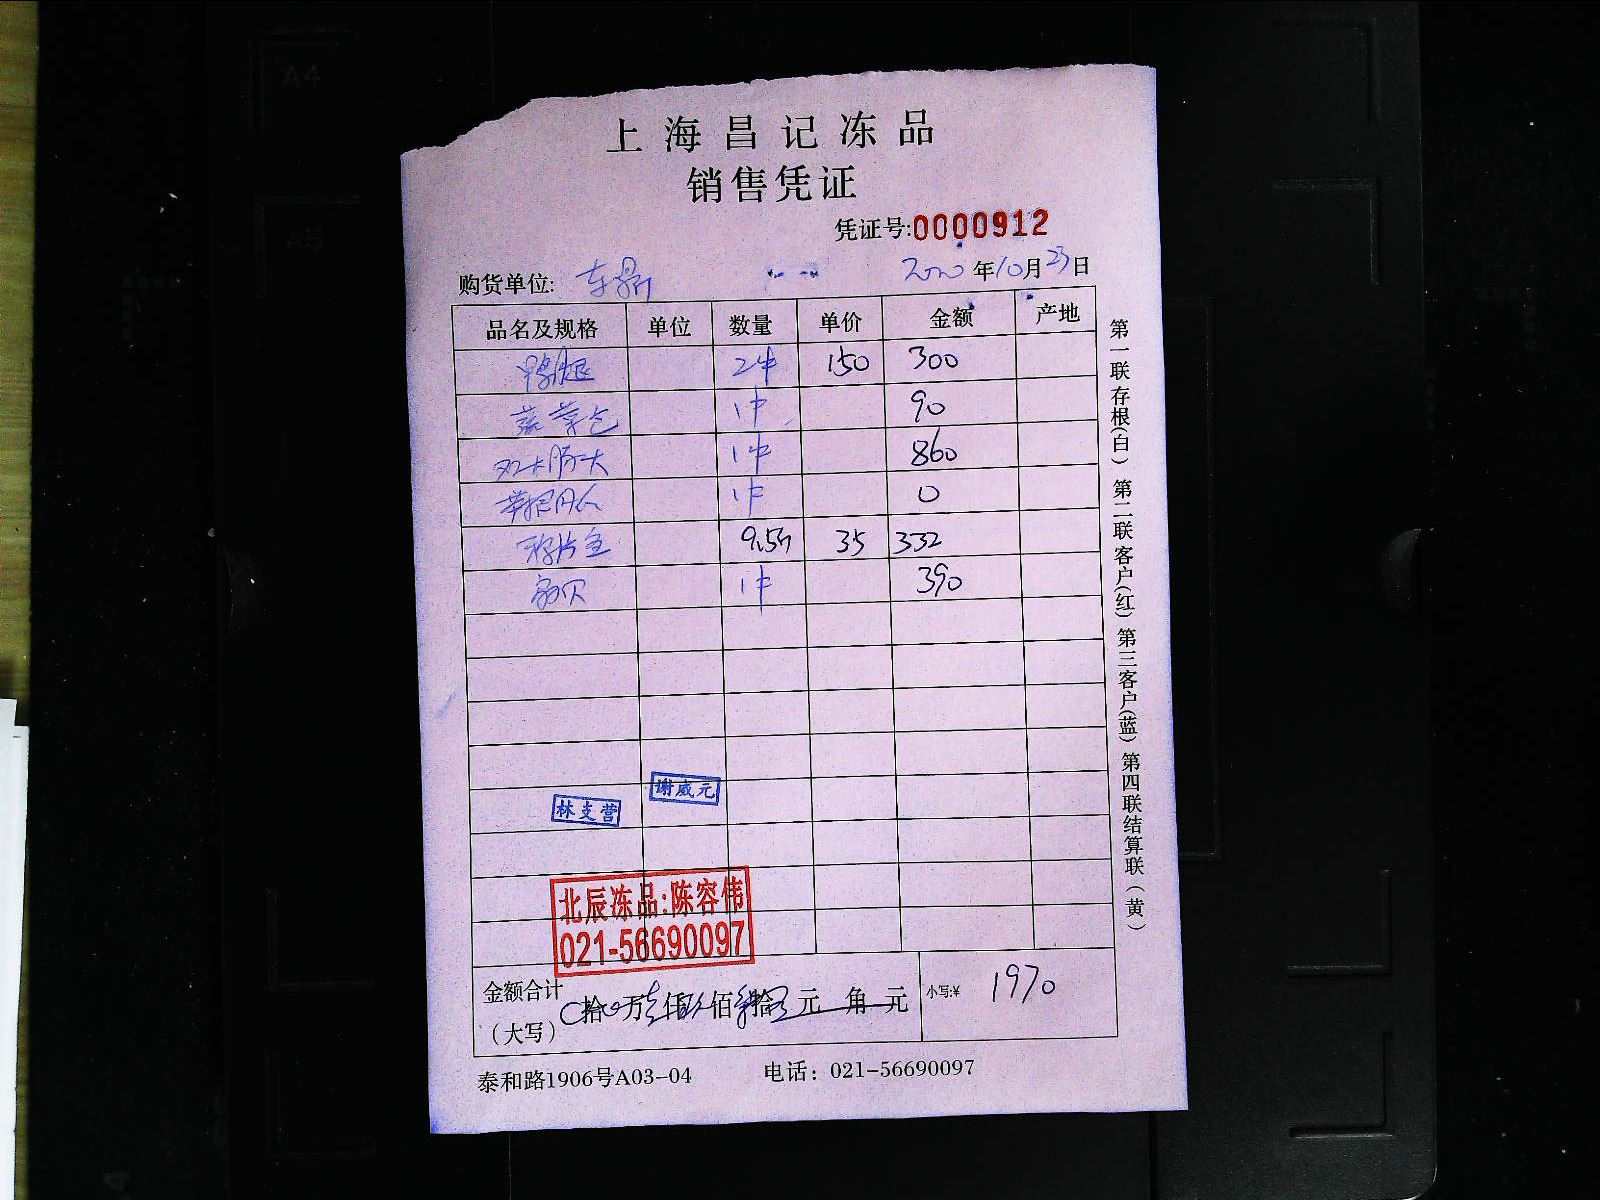 A4
A5
上海昌记冻品
销售凭证
凭证号:0000912
购货单位: 2020年10月23日
品名及规格 单位 数量 单价 金额 产地
鸭腿 2件 150 300
蔬菜包 1件 90
1件 860
1件 0
9.5斤 35 332
扇贝 1件 390
谢威元
林支营
北辰冻品:陈容伟
021-56690097
金额合计
(大写) 拾万仟佰拾元角元 小写:¥ 1970
泰和路1906号A03-04 电话：021-56690097
第一联存根(白) 第二联客户(红) 第三客户(蓝) 第四联结算联(黄)